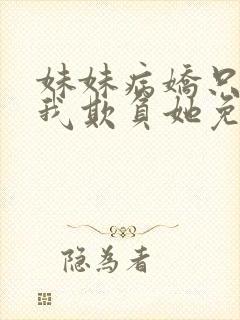 妹妹病娇只
我欺負她免
隐為者